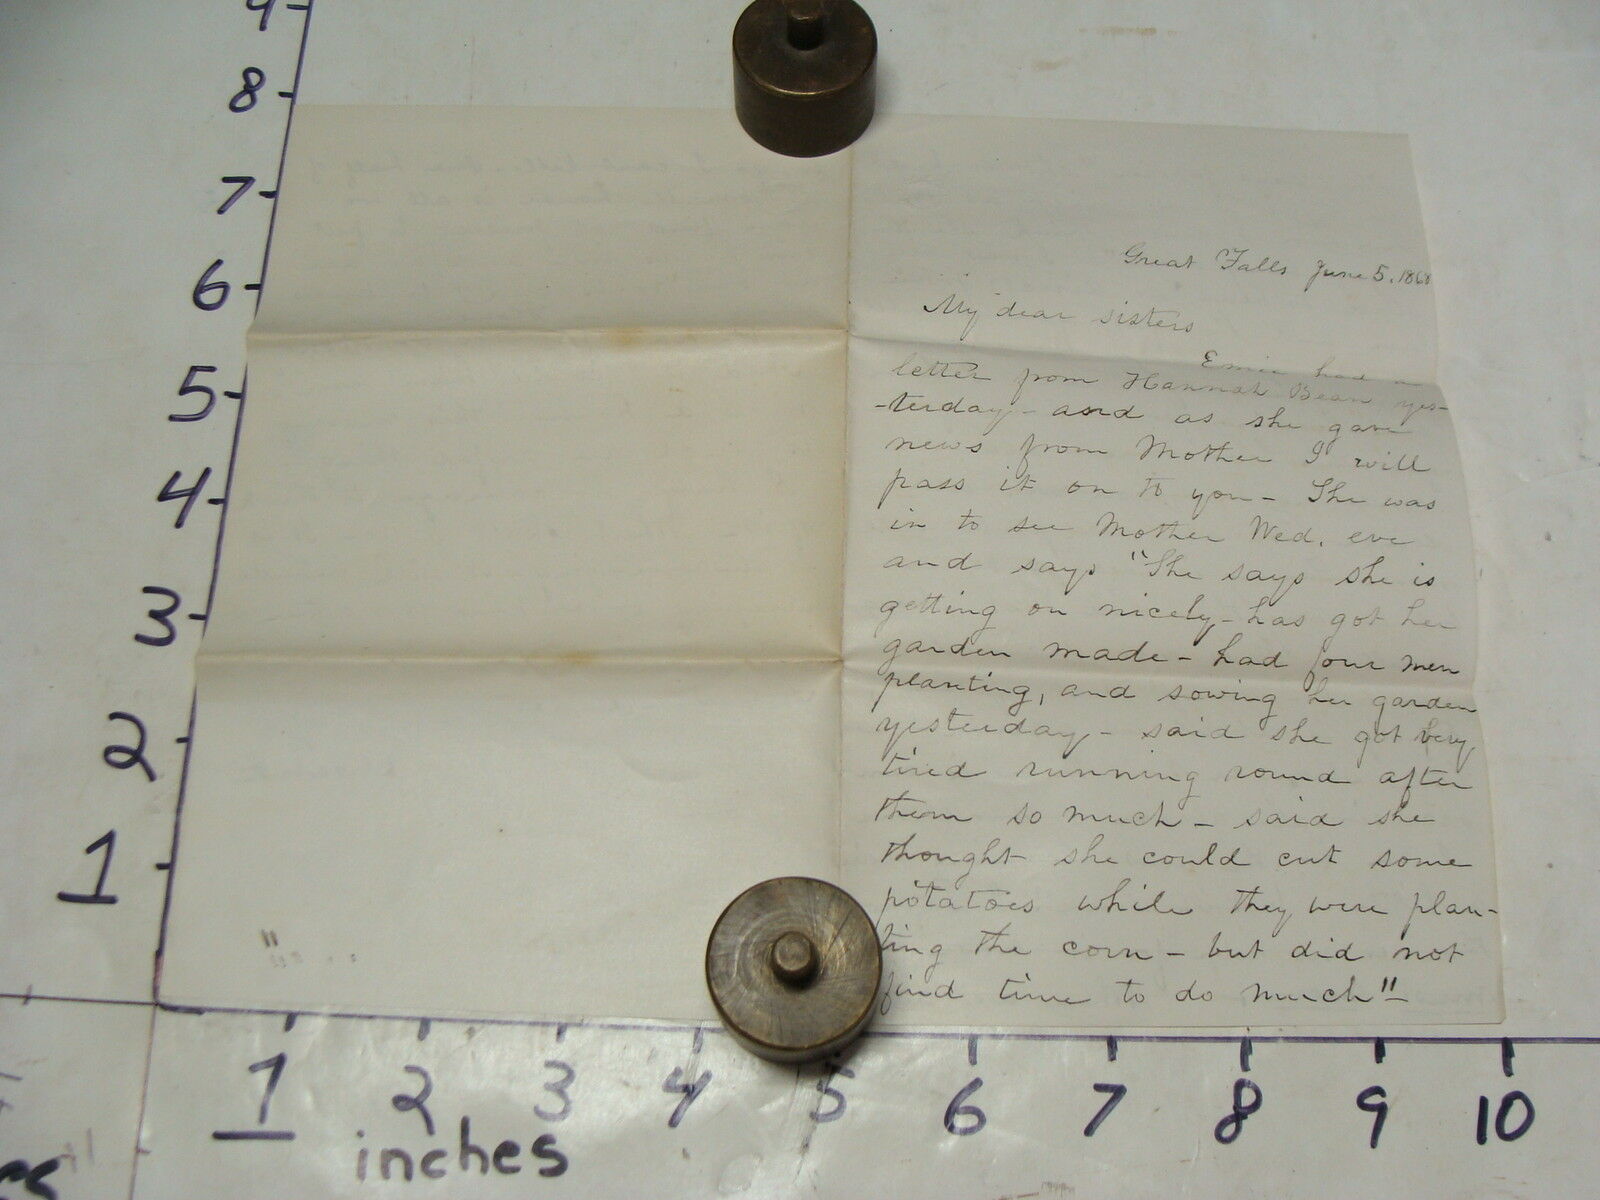 9
8
7
6
5
4
3
2
1
Great Falls June 5, 1868
My dear sisters
Emie had a
letter from Hannah Bean yes-
-terday - and as she gave
news from Mother I will
pass it on to you - She was
in to see Mother Wed. eve
and says "She says she is
getting on nicely - has got her
garden made - had four men
planting, and sowing her garden
yesterday - said she got very
tired running round after
them so much - said she
thought she could cut some
potatoes while they were plan-
ting the corn - but did not
find time to do much" -
1 2 3 4 5 6 7 8 9 10
inches